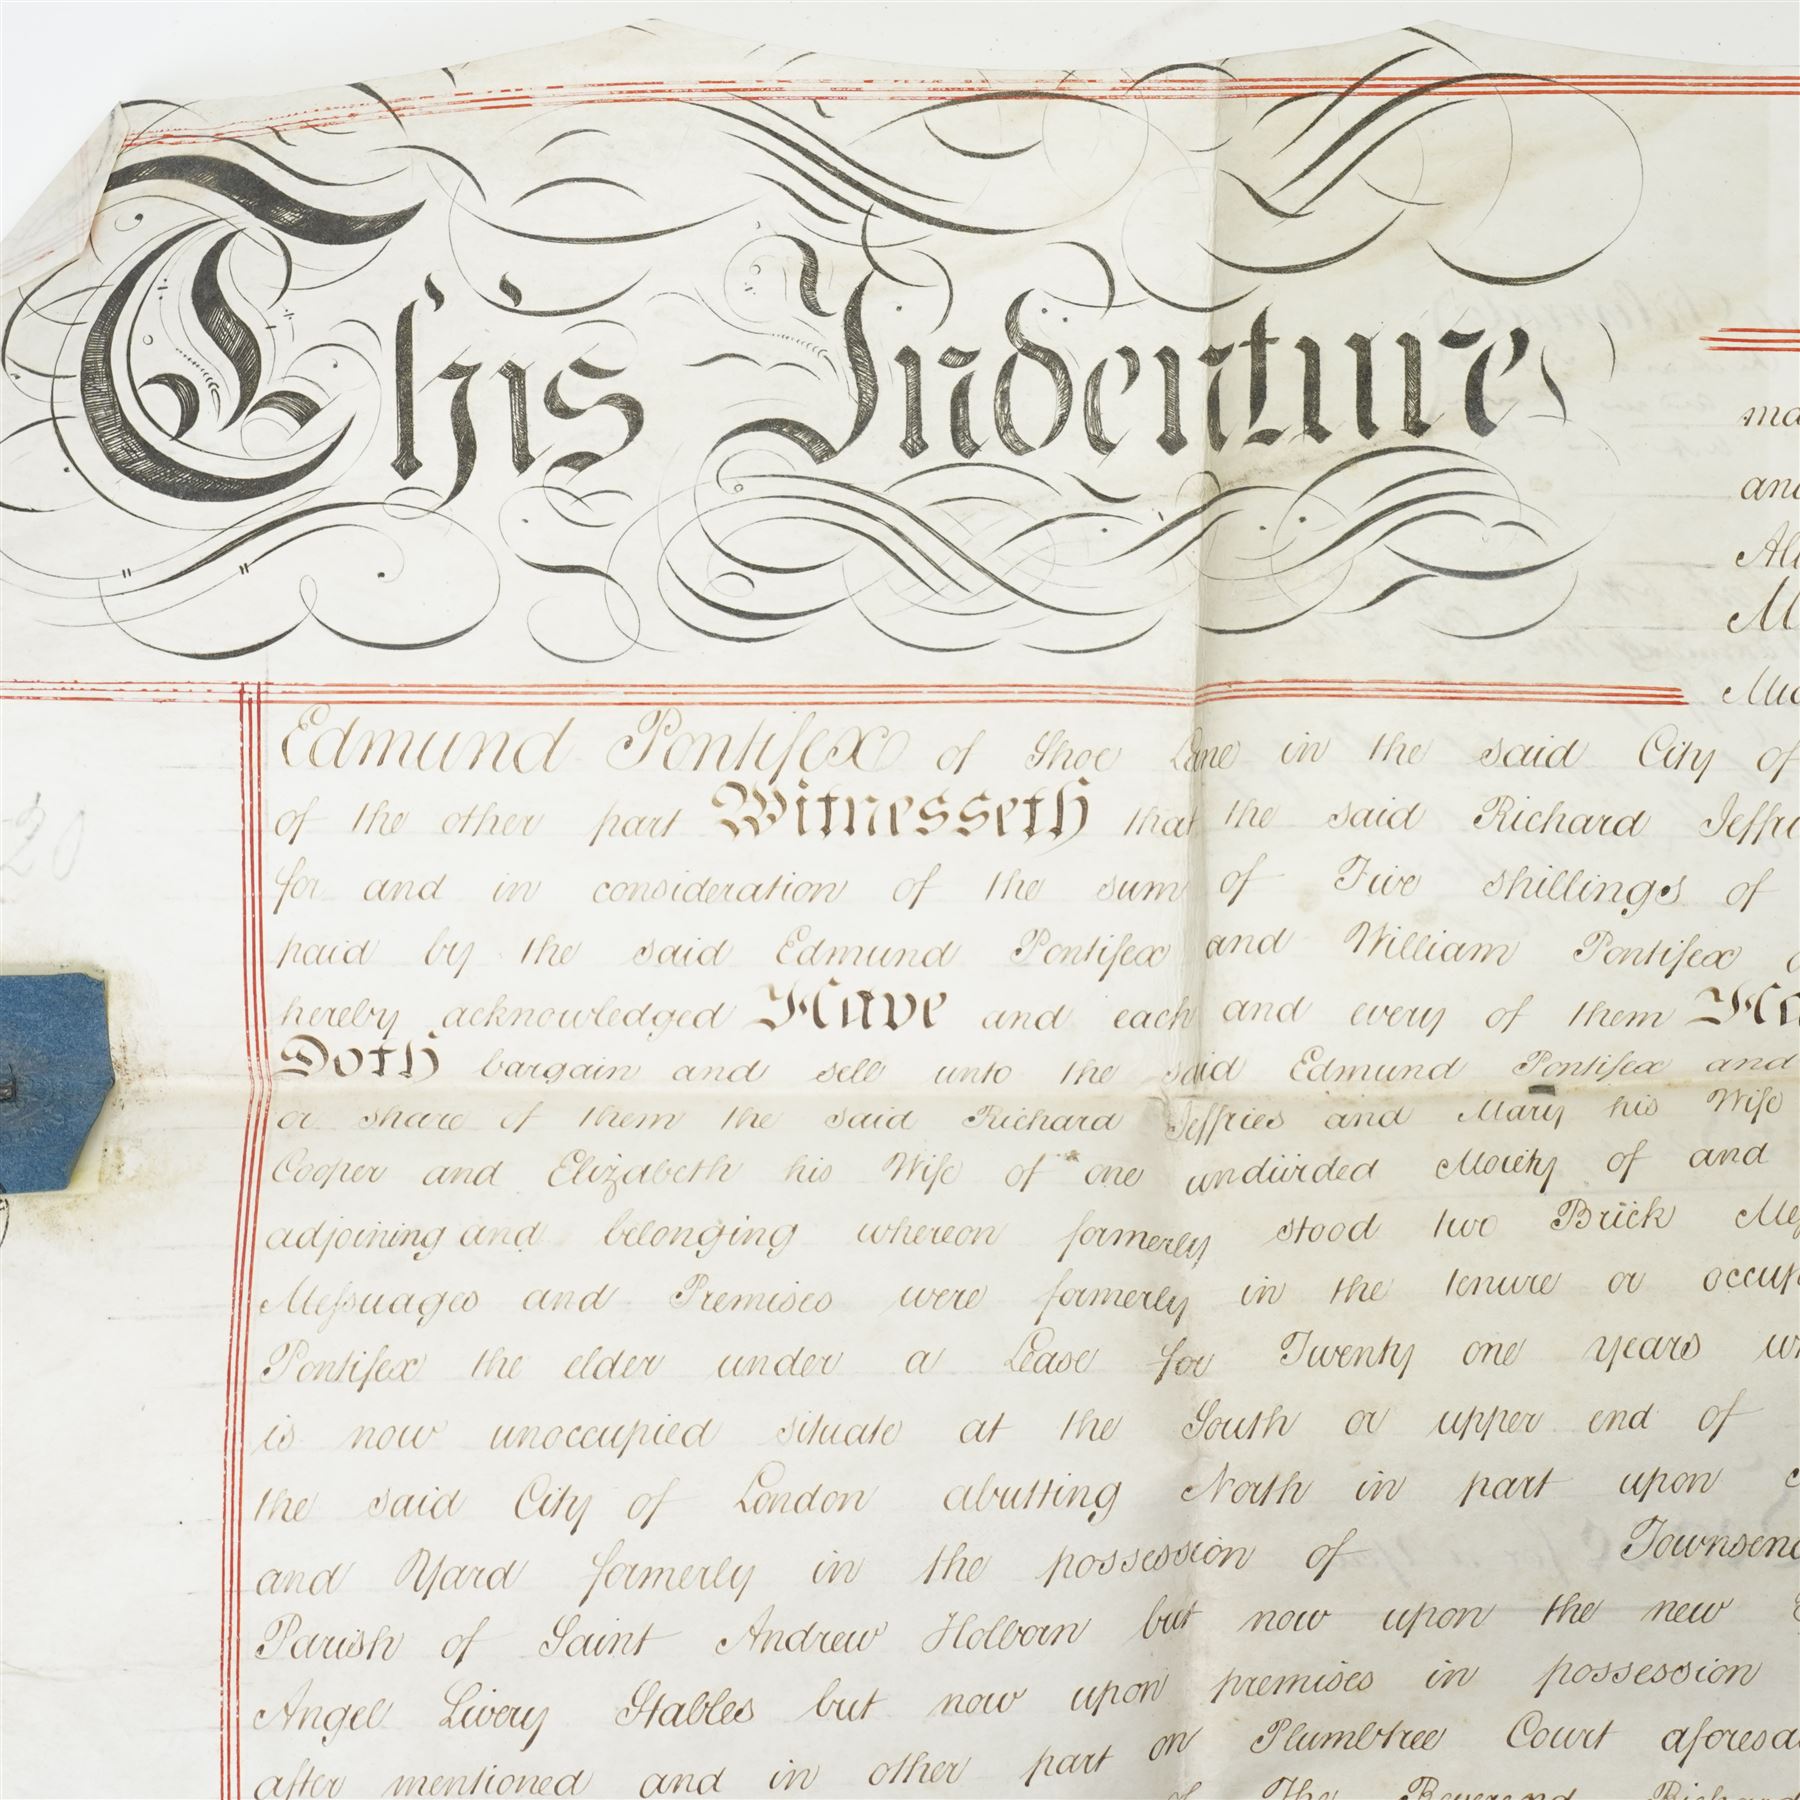 This Indenture
Edmund Pontifex of Shoe Lane in the said City of
of the other part Witnesseth that the said Richard Jeffri
for and in consideration of the sum of Five shillings of
paid by the said Edmund Pontifex and William Pontifex
hereby acknowledged Have and each and every of them Ha
Doth bargain and sell unto the said Edmund Pontifex and
or share of them the said Richard Jeffries and Mary his Wife
Cooper and Elizabeth his Wife of one undivided Moiety of and
adjoining and belonging whereon formerly stood two Brick Mes
Messuages and Premises were formerly in the tenure or occup
Pontifex the elder under a Lease for Twenty one years
is now unoccupied situate at the South or upper end of
the said City of London abutting North in part upon
and Yard formerly in the possession of Townsend
Parish of Saint Andrew Holborn but now upon the new
Angel Livery Stables but now upon premises in possession
after mentioned and in other part on Plumbtree Court aforesa
of The Reverend Richard